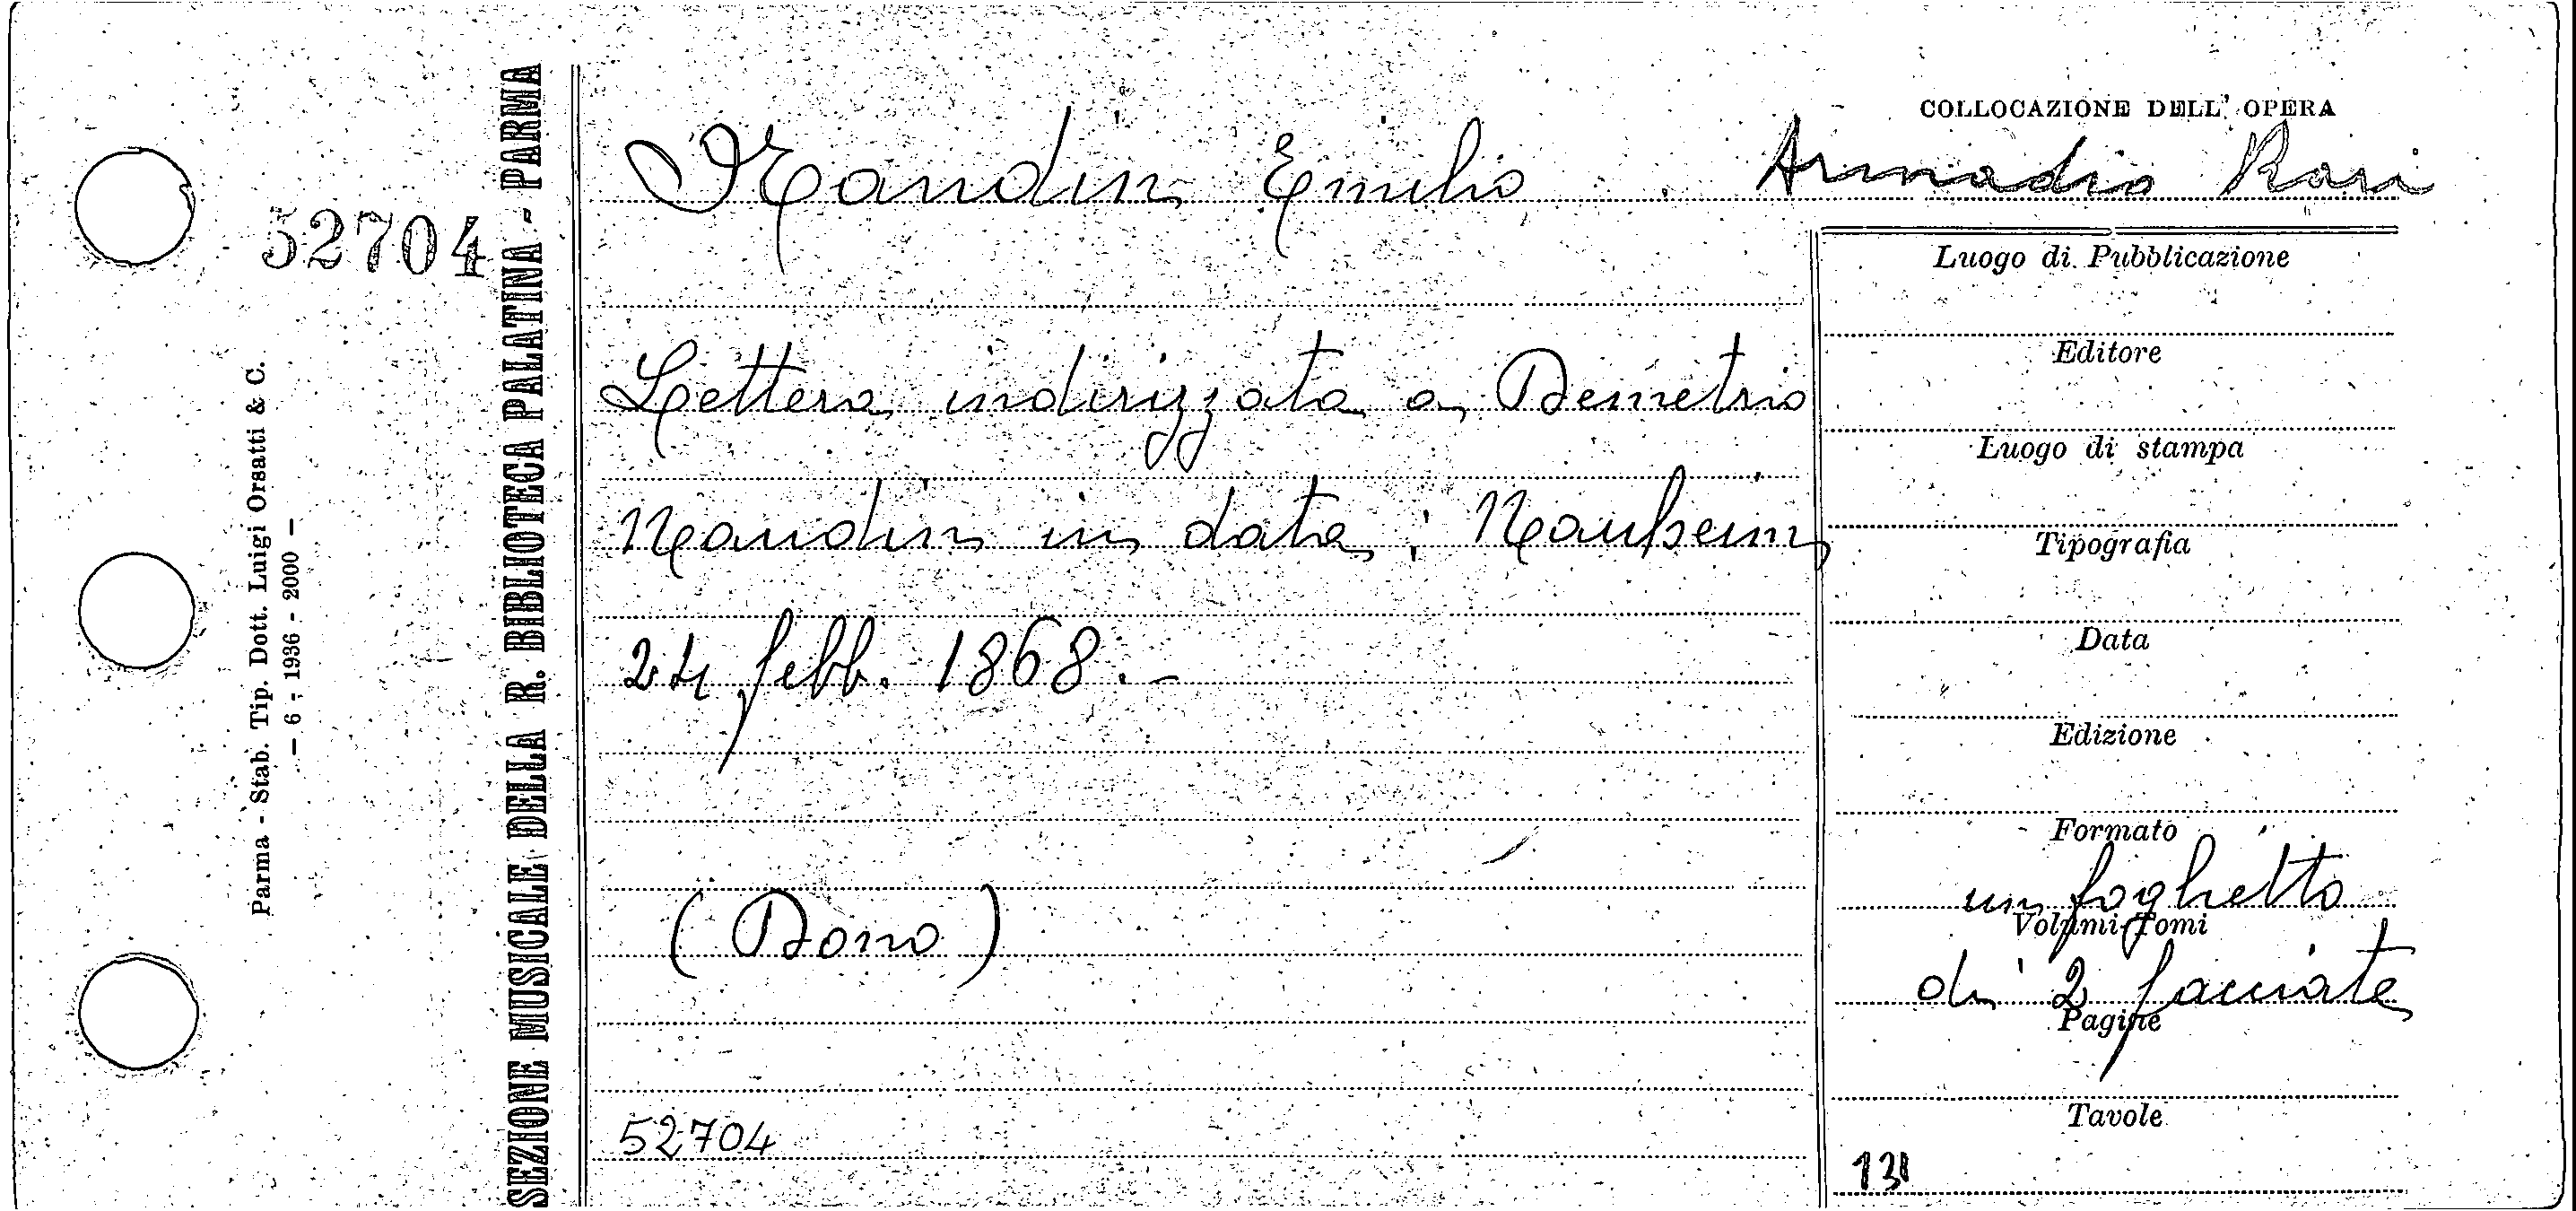 52704
Parma - Stab. Tip. Dott. Luigi Orsatti & C.
— 6 - 1936 - 2000 —
SEZIONE MUSICALE DELLA R. BIBLIOTECA PALATINA - PARMA
Naudin Emilio
COLLOCAZIONE DELL' OPERA
Armadio Rari
Lettera indirizzata a Demetrio
Naudin in data:
24 febb. 1868.-
(Dono)
52704
Luogo di Pubblicazione
Editore
Luogo di stampa
Tipografia
Data
Edizione
Formato
un foglietto
Volumi-Tomi
di 2 facciate
Pagine
Tavole
131